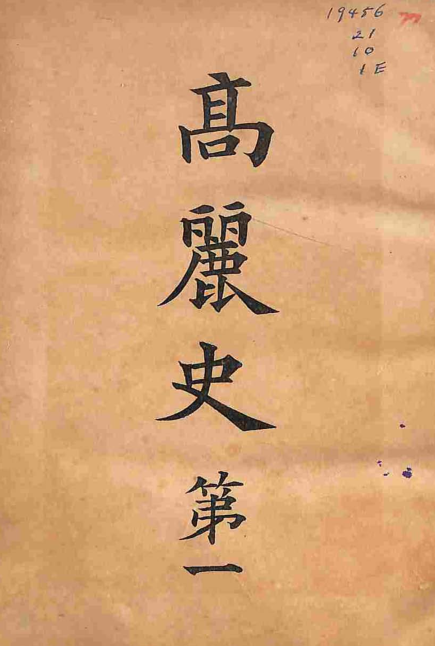 19456
21
10
1E
髙麗史
第一